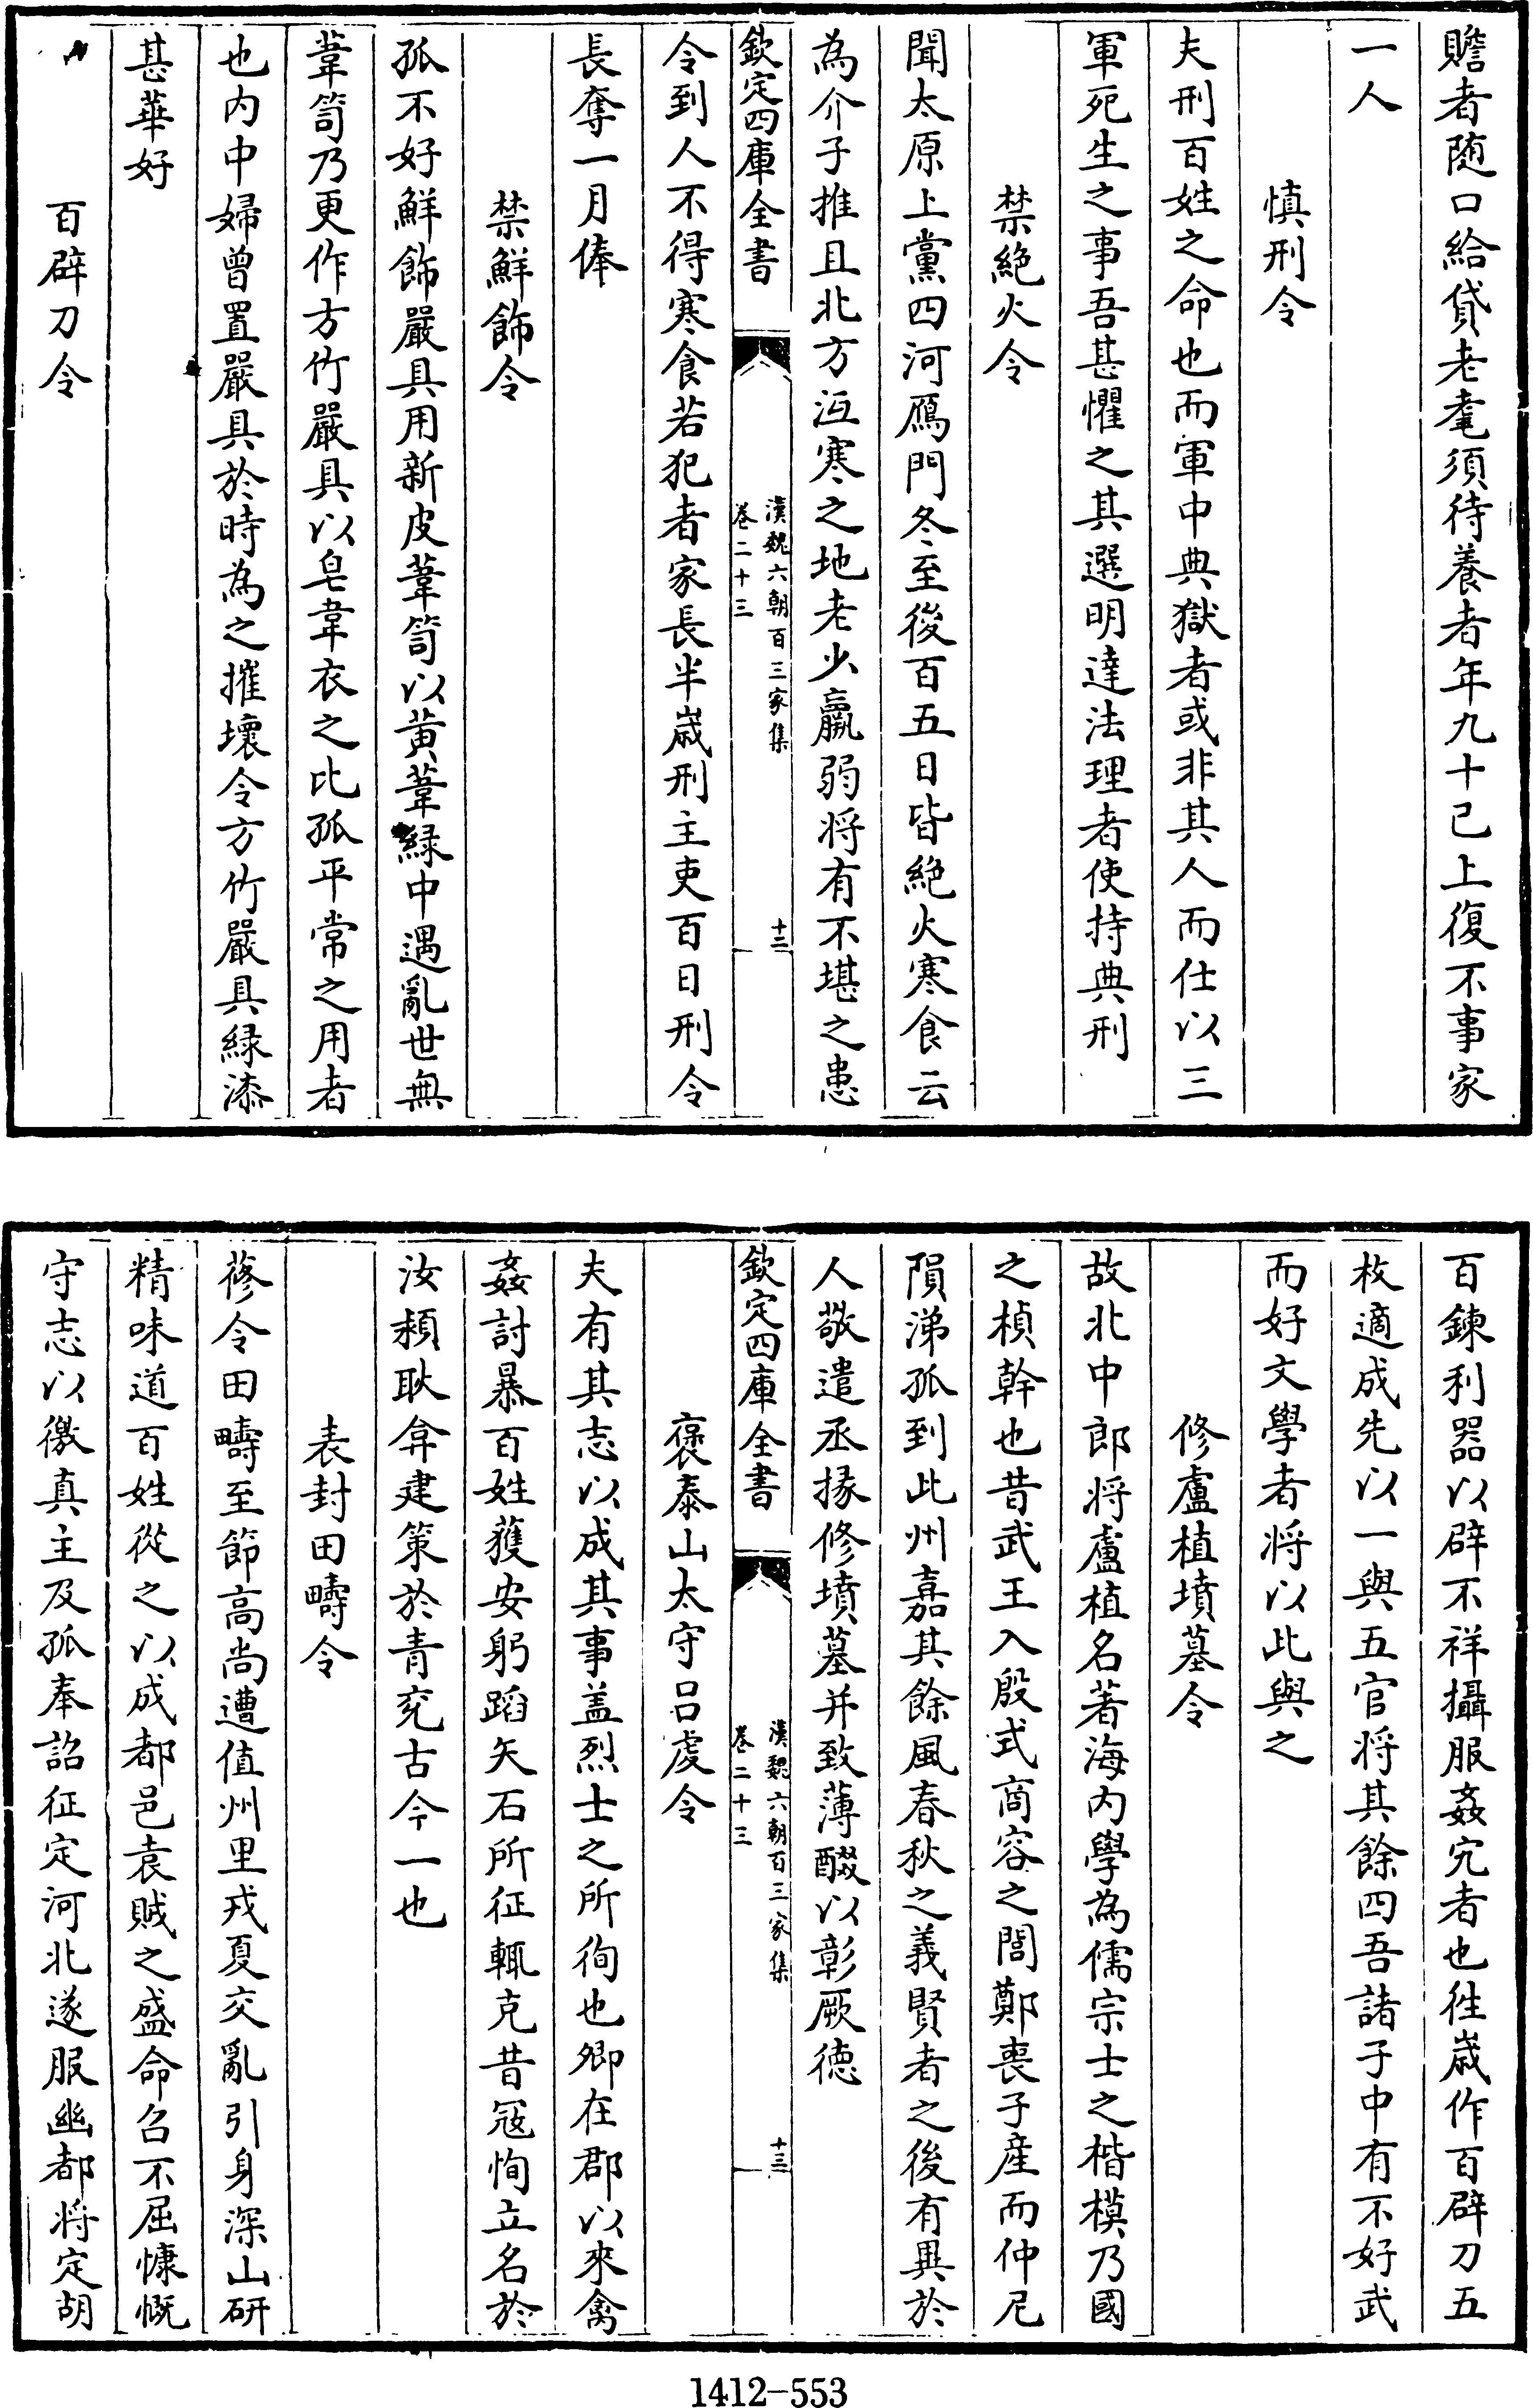 贍者随口給貸老耄須待養者年九十已上復不事家
一人
慎刑令
夫刑百姓之命也而軍中典獄者或非其人而任以三
軍死生之事吾甚懼之其選明達法理者使持典刑
禁絶火令
聞太原上黨四河鴈門冬至後百五日皆絶火寒食云
為介子推且北方沍寒之地老少羸弱将有不堪之患
欽定四庫全書
漢魏六朝百三家集
卷二十三
十二
令到人不得寒食若犯者家長半嵗刑主吏百日刑令
長奪一月俸
禁鮮飾令
孤不好鮮飾嚴具用新皮葦笥以黄葦緑中遇亂世無
葦笥乃更作方竹嚴具以皂韋衣之比孤平常之用者
也内中婦曾置嚴具於時為之摧壞令方竹嚴具緑漆
甚華好
百辟刀令
百鍊利器以辟不祥攝服姦宄者也往嵗作百辟刀五
枚適成先以一與五官将其餘四吾諸子中有不好武
而好文學者将以此與之
修盧植墳墓令
故北中郎将盧植名著海内學為儒宗士之楷模乃國
之楨幹也昔武王入殷式商容之閭鄭喪子産而仲尼
隕涕孤到此州嘉其餘風春秋之義賢者之後有異於
人敬遣丞掾修墳墓并致薄醊以彰厥徳
欽定四庫全書
漢魏六朝百三家集
卷二十三
十三
褒泰山太守吕虔令
夫有其志以成其事盖烈士之所徇也卿在郡以來禽
姦討暴百姓獲安躬蹈矢石所征輒克昔冦恂立名於
汝潁耿弇建策於青兖古今一也
表封田疇令
蓨令田疇至節高尚遭值州里戎夏交亂引身深山研
精味道百姓從之以成都邑袁賊之盛命召不屈慷慨
守志以徼真主及孤奉詔征定河北遂服幽都将定胡
1412-553